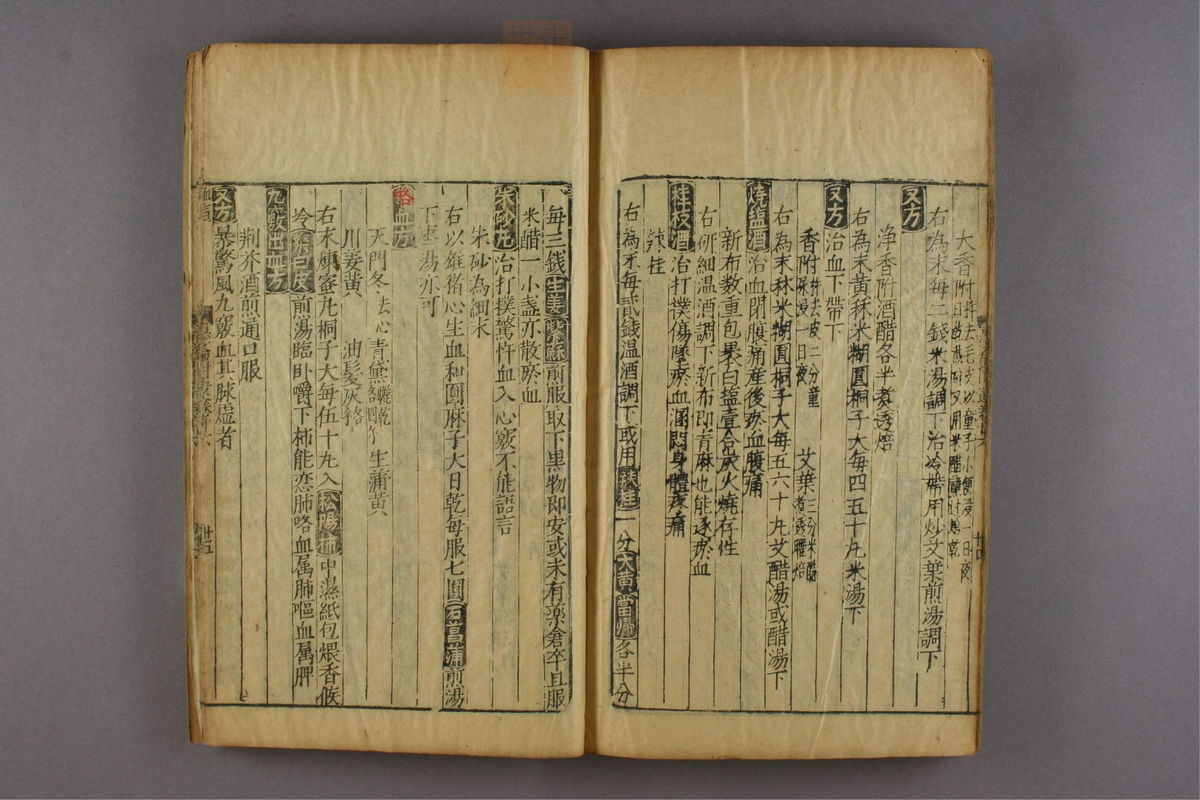 大香附
右為末每二錢米湯調下治冷帶用炒艾葉煎湯調下
又方
淨香附酒醋各半煮透焙
右為末黃秫米糊圓桐子大每四五十丸米湯下
又方
治血下帶下
香附 艾葉
右為末秫米糊圓桐子大每五六十丸艾醋湯或醋湯下
燒塩酒
治血閉腹痛產後瘀血腹痛
新布数重包裹白塩壹合炭火燒存性
右研細温酒調下新布即青麻也能逐瘀血
桂枝酒
治打撲傷墜瘀血溷悶身體疼痛
辣桂
右為末每貳錢温酒調下或用辣桂一分大黄當歸各半分
每三錢生姜紫蘇煎服取下黑物即安或未有藥倉卒且服
米醋一小盞亦散瘀血
朱砂丸
治打撲驚忤血入心竅不能語言
朱砂為細末
右以雄猪心生血和圓麻子大日乾每服七圓石菖蒲煎湯
下棗湯亦可
咯血方
天門冬去心 青黛 生蒲黄
川姜黄 油髮灰
右末煉蜜丸桐子大每伍十丸入松陽柿中濕紙包煨香候
冷桑白皮煎湯臨卧嚼下柿能恋肺咯血属肺嘔血属脾
九竅出血方
荆芥酒煎通口服
又方
暴驚風九竅血其脉虚者